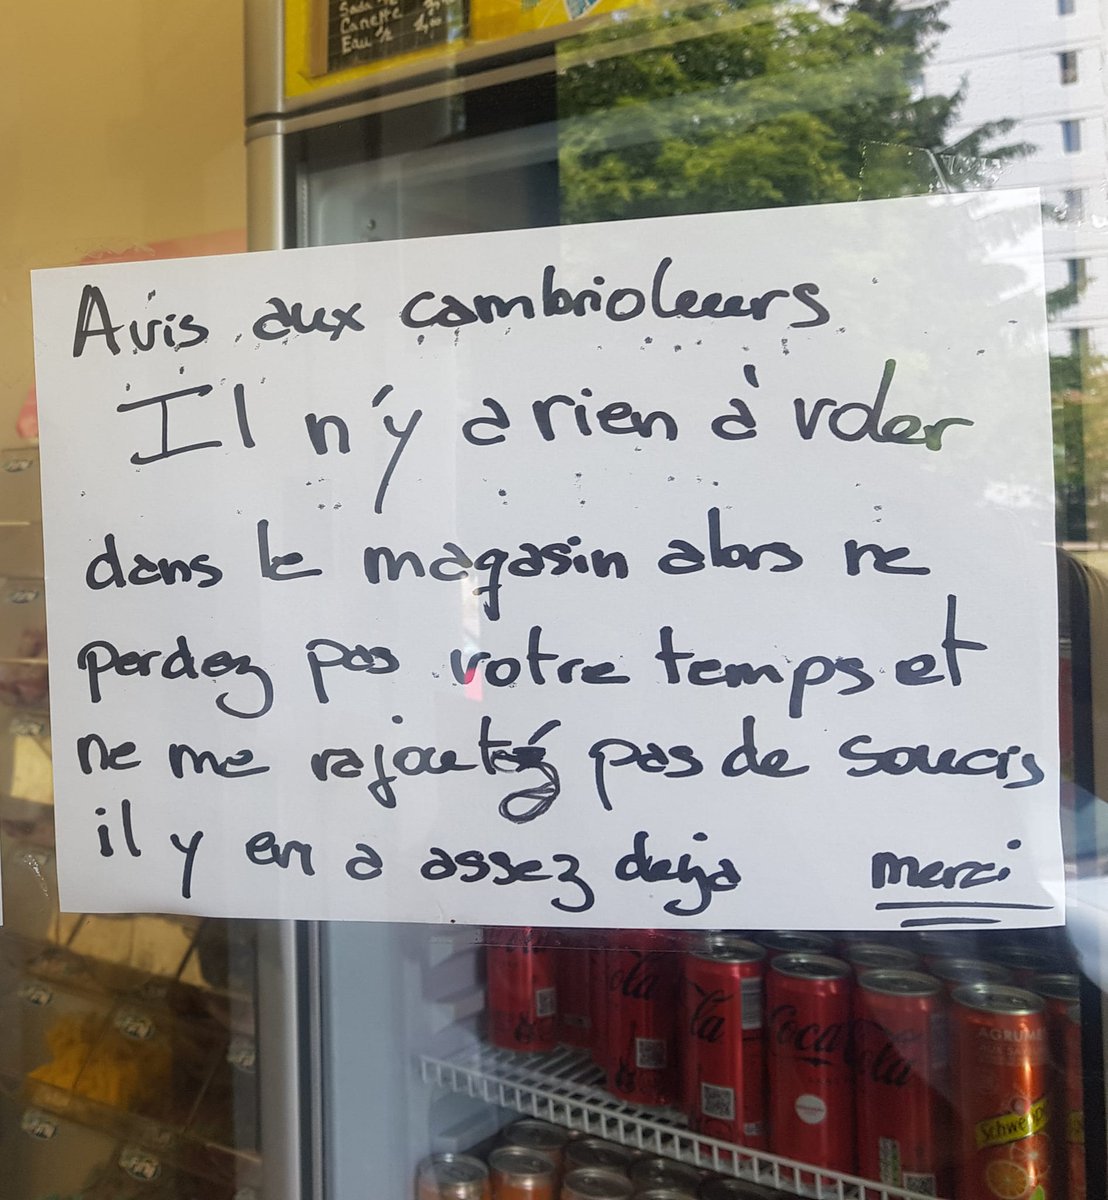 Canette
Eau
Avis aux cambrioleurs
Il n'y a rien à voler
dans le magasin alors ne
perdez pas votre temps et
ne me rajoutez pas de soucis
il y en a assez deja
merci
Cola
la
Coca-Cola
AGRUM
Schwe